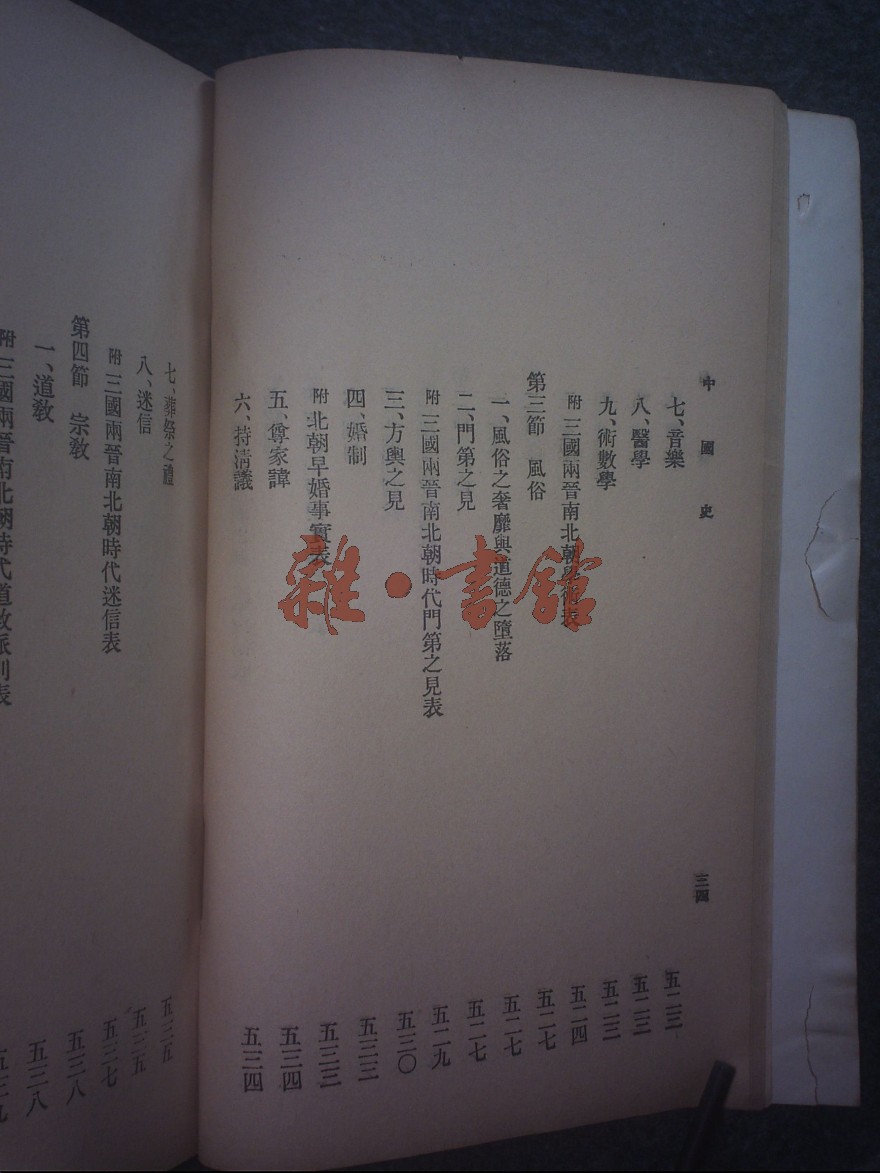 中國史
三四
七、音樂 五二三
八、醫學 五二三
九、術數學 五二三
附 三國兩晉南北朝學術表 五二四
第三節 風俗 五二七
一、風俗之奢靡與道德之墮落 五二七
二、門第之見 五二七
附 三國兩晉南北朝時代門第之見表 五二九
三、方輿之見 五三〇
四、婚制 五三三
附 北朝早婚事實表 五三三
五、尊家諱 五三四
六、持淸議 五三四
七、葬祭之禮 五三五
八、迷信 五三五
附 三國兩晉南北朝時代迷信表 五三七
第四節 宗敎 五三八
一、道敎 五三八
附 三國兩晉南北朝時代道敎派別表 五三九
雜·書館